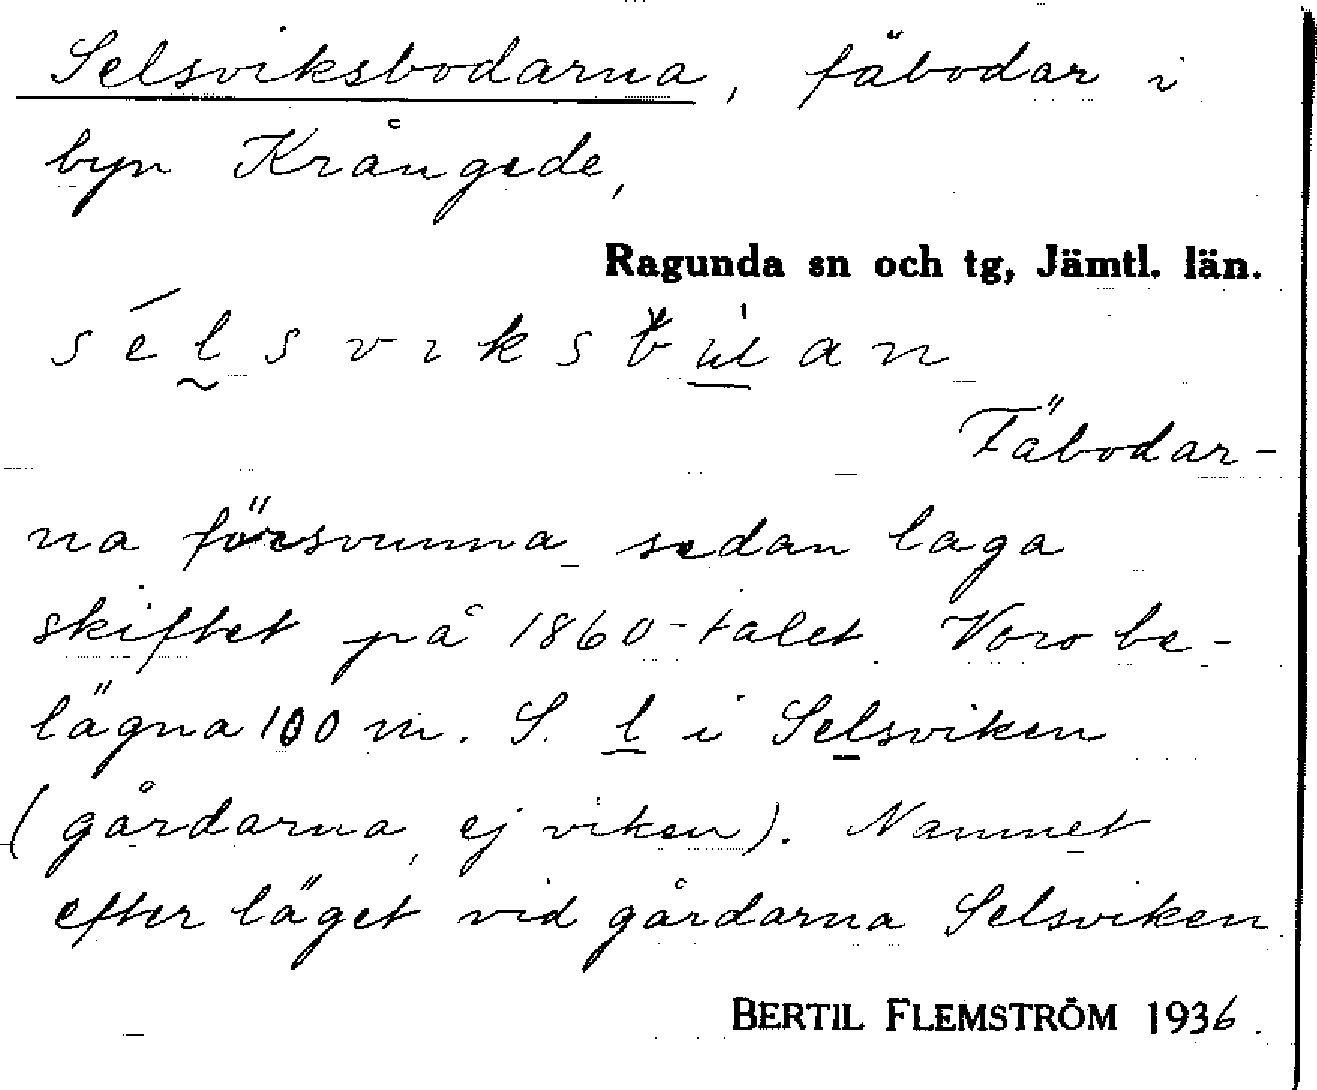 Selsviksbodarna, fäbodar i
byn Krångede,
Ragunda sn och tg, Jämtl. län.
Fäbodar-
na försvunna sedan laga
skiftet på 1860-talet. Voro be-
lägna 100 m. S. l i Selsviken
(gårdarna, ej viken). Namnet
efter läget vid gårdarna Selsviken.
BERTIL FLEMSTRÖM 1936.